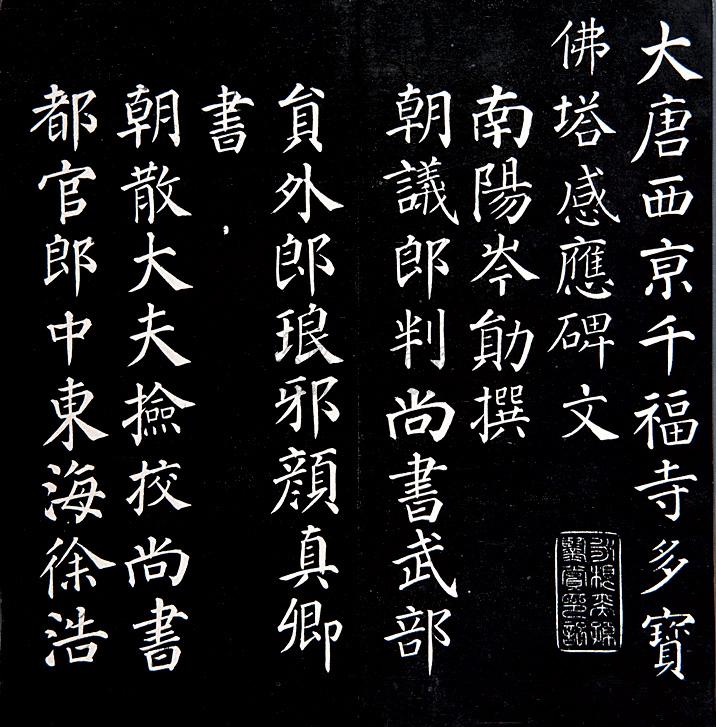 大唐西亰千福寺多寶
佛塔感應碑文
南陽岑勛撰
朝議郎判尚書武部
貟外郎琅邪顔真卿
書
朝散大夫撿挍尚書
都官郎中東海徐浩